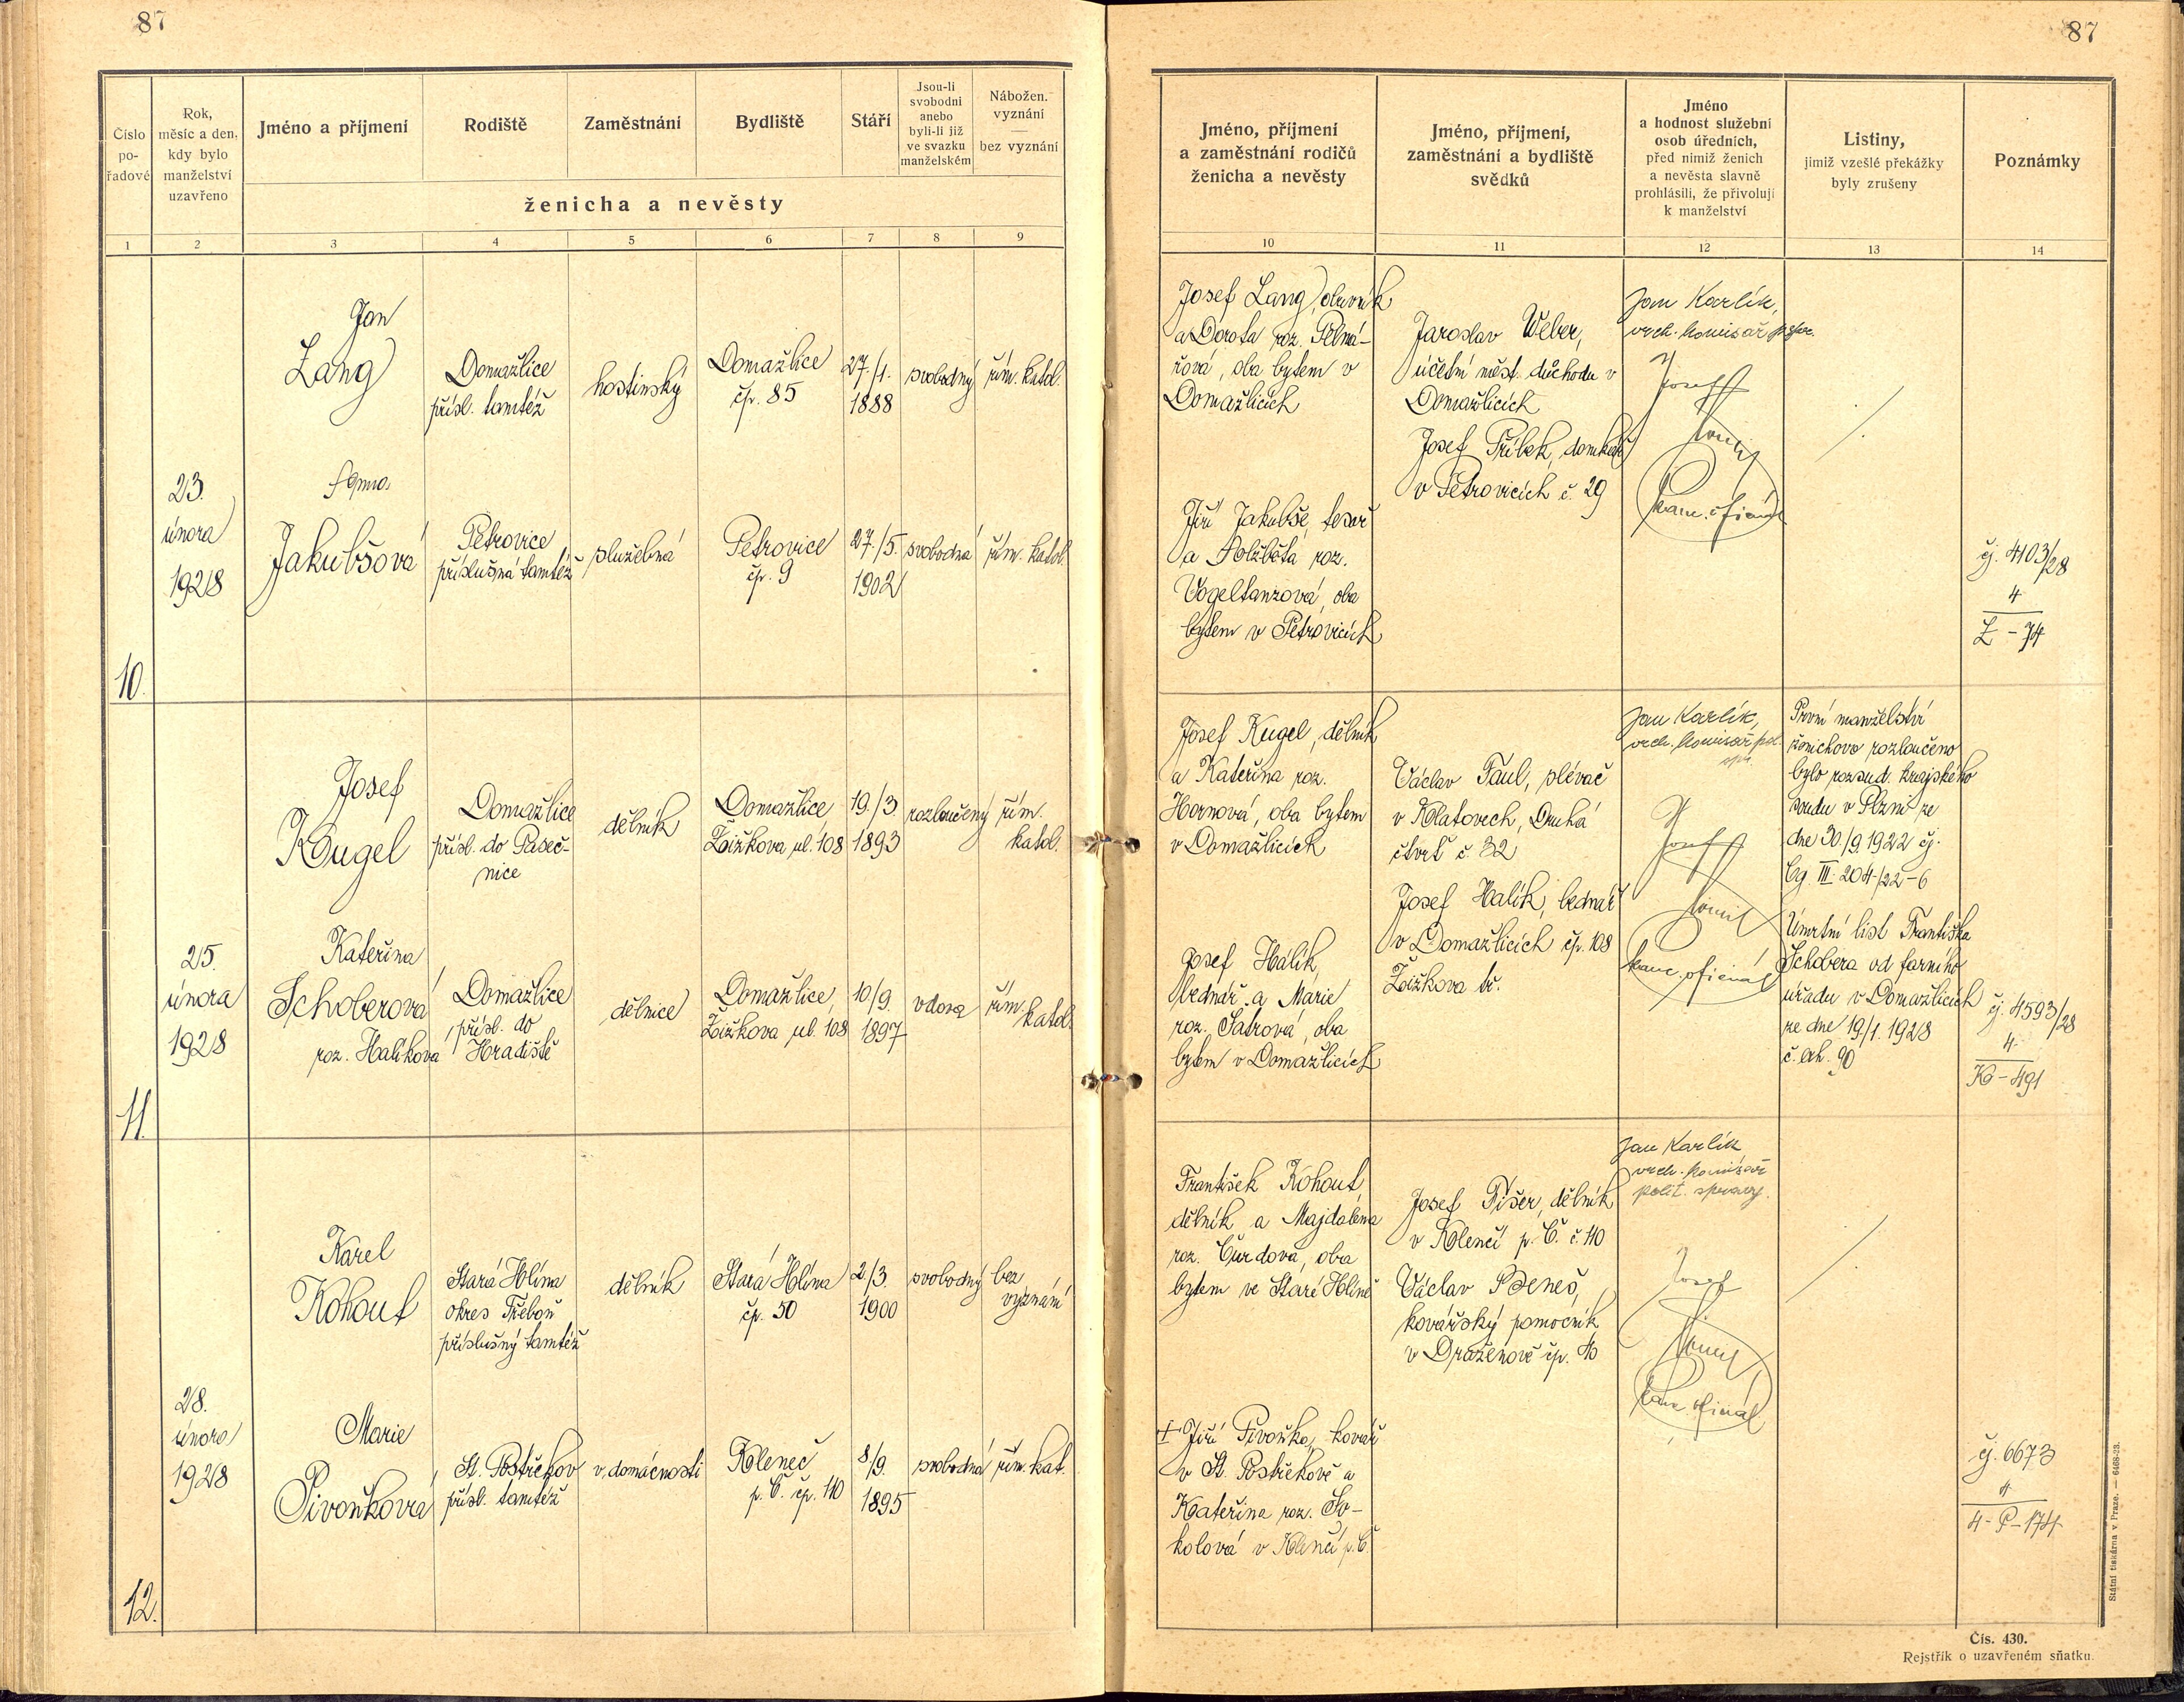 87
87
Číslo pořadové
Rok, měsíc a den, kdy bylo manželství uzavřeno
Jméno a příjmení
Rodiště
Zaměstnání
Bydliště
Stáří
Jsou-li svobodni anebo byli-li již ve svazku manželském
Nábožen. vyznání
bez vyznání
ženicha a nevěsty
1 2 3 4 5 6 7 8 9
Jméno, příjmení
a zaměstnání rodičů
ženicha a nevěsty
Jméno, příjmení,
zaměstnání a bydliště
svědků
Jméno
a hodnost služební
osob úředních,
před nimiž ženich
a nevěsta slavně
prohlásili, že přivolují
k manželství
Listiny,
jimiž vzešlé překážky
byly zrušeny
Poznámky
10 11 12 13 14
10.
23.
února
1928
Jan
Lang
Domažlice
přísl. tamtéž
hostinský
Domažlice
čp. 85
27./1.
1888
svobodný
řím. katol.
Anna
Jakubšová
Petrovice
příslušná tamtéž
služebná
Petrovice
čp. 9
27./5.
1902
svobodná
řím. katol.
Josef Lang, obuvník
a Dorota roz.
oba bytem v
Domažlicích
Jiří Jakubše, tesař
a Alžběta roz.
Vogeltanzová, oba
bytem v Petrovicích
Jaroslav Weber,
účetní měst. důchodu v
Domažlicích
Josef Příbek, domkář
v Petrovicích č. 29
Jan Karlík,
vrch. komisař
Josef
kanc. oficiál
čj. 4103/28
4
L - 74
11.
25.
února
1928
Josef
Kugel
Domažlice
přísl. do Paseč-
nice
dělník
Domažlice
Žižkova ul. 108
19./3.
1893
rozloučený
řím.
katol.
Kateřina
Schoberová
roz. Halíková
Domažlice
přísl. do
Hradiště
dělnice
Domažlice,
Žižkova ul. 108
10/9.
1897
vdova
řím.
katol.
Josef Kugel, dělník
a Kateřina roz.
Hornová, oba bytem
v Domažlicích
Josef Halík,
bednář a Marie
roz. Satrová, oba
bytem v Domažlicích
Václav Paul, slévač
v Klatovech, Druhá
čtvrť č. 32
Josef Halík, bednář
v Domažlicích čp. 108
Žižkova tř.
Jan Karlík,
vrch. komisař pol.
Josef
kanc. oficiál
První manželství
ženichovo rozloučeno
bylo rozsud. krajského
soudu v Plzni ze
dne 30/9. 1922 čj.
Cg. III. 204/22-6
Úmrtní list Františka
Schobera od farního
úřadu v Domažlicích
ze dne 19/1. 1928
90
čj. 4593/28
4
K - 491
12.
28.
února
1928
Karel
Kohout
Stará Hlína
okres Třeboň
příslušný tamtéž
dělník
Stará Hlína
čp. 50
2./3.
1900
svobodný
bez
vyznání
Marie
Pivoňková
St. Postřekov
přísl. tamtéž
v domácnosti
Kleneč
p. Č. čp. 110
8/9.
1895
svobodná
řím. kat.
František Kohout,
dělník a Majdaléna
roz. Čurdová, oba
bytem ve Staré Hlíně
† Jiří Pivoňka, kovář
v St. Postřekově a
Kateřina roz. So-
kolová v Klenčí p. Č.
Josef Fišer, dělník
v Klenčí p. Č. č. 110
Václav Beneš,
kovářský pomocník
v Draženově čp.
Jan Karlík
vrch. komisař
polit. správy.
Josef
kanc. oficiál
čj. 6673
4
4 - P - 174
Státní tiskárna v Praze. — 6468-23.
Čís. 430.
Rejstřík o uzavřeném sňatku.